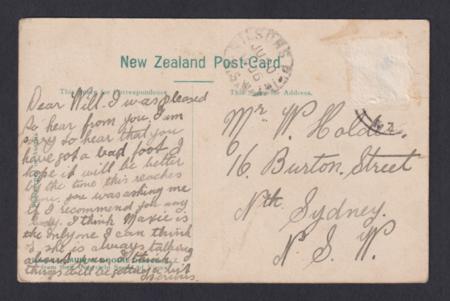 New Zealand Post-Card.
This Space for Correspondence.
This Space for Address.
Dear Will. I was pleased
to hear from you, I am
sorry to hear that you
have got a bad foot I
hope it will be better
by the time this reaches
you, you was asking me
if I recommend you any
body. I think Maxie is
the only one I can think
of, she is always talking
about you, I think
things will be getting a bit
serious.
Mr W. Holder
16, Burton Street
Nth Sydney.
N. S. W.